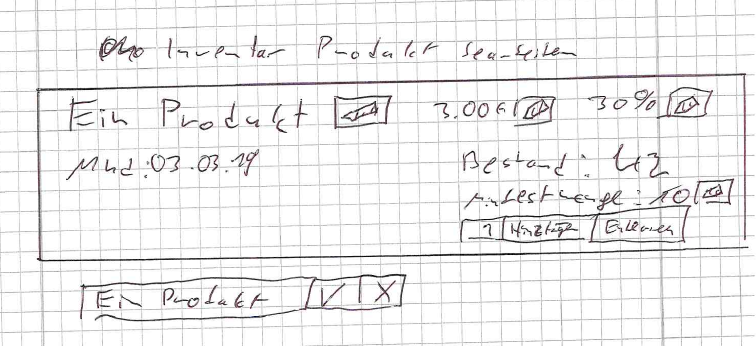 Inventar Produkt bearbeiten
Ein Produkt 3.00€ 30%
Mhd: 03.03.19 Bestand: 42
Mindestmenge: 10
1 Hinzfügen Entfernen
Ein Produkt ✓ X